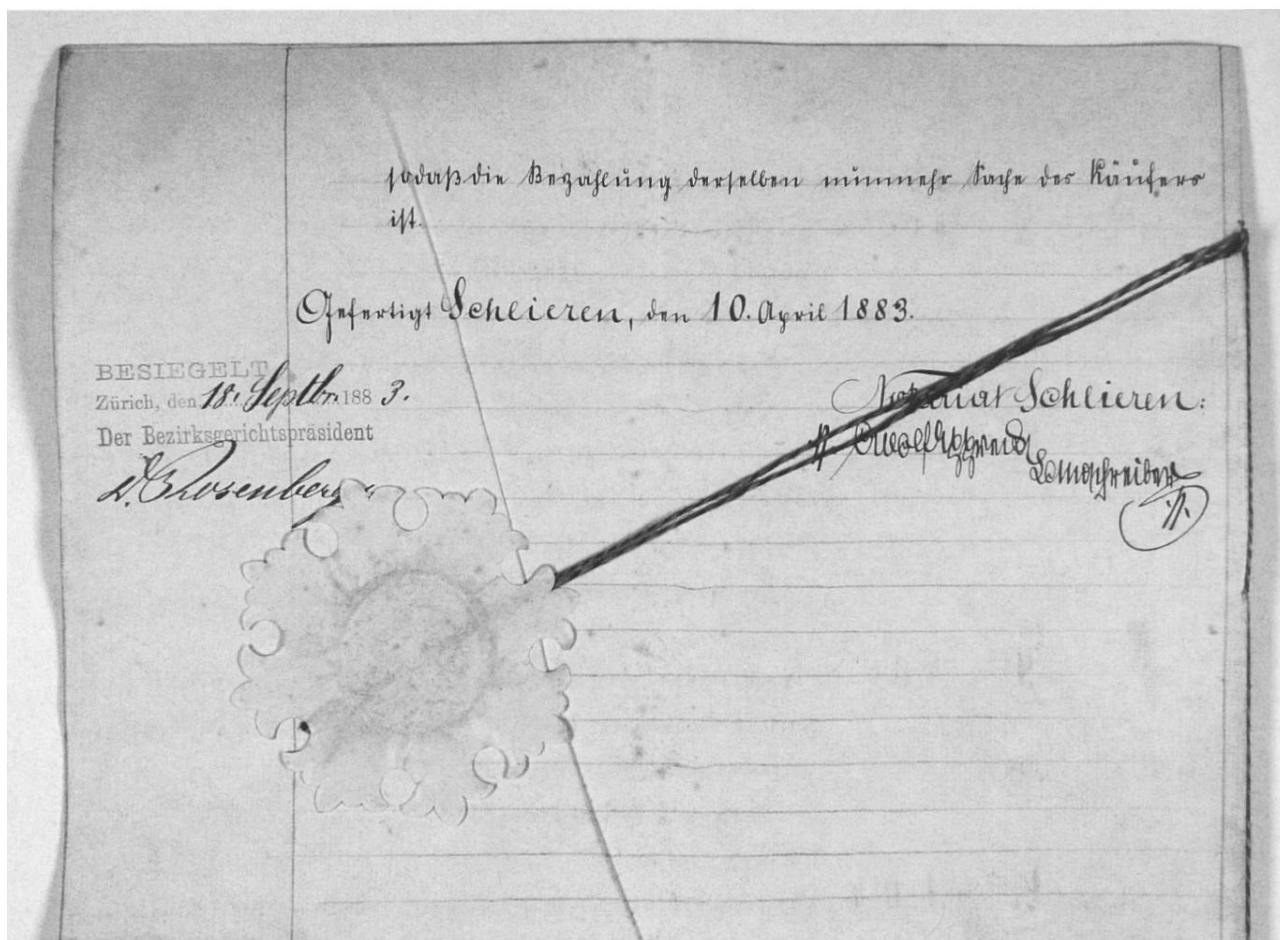 sodaß die Bezahlung derselben nunmehr Sache des Käufers
ist.
Gefertigt Schlieren, den 10. April 1883.
BESIEGELT
Zürich, den 18. Septbr. 1883.
Der Bezirksgerichtspräsident
Notariat Schlieren:
Landschreiber